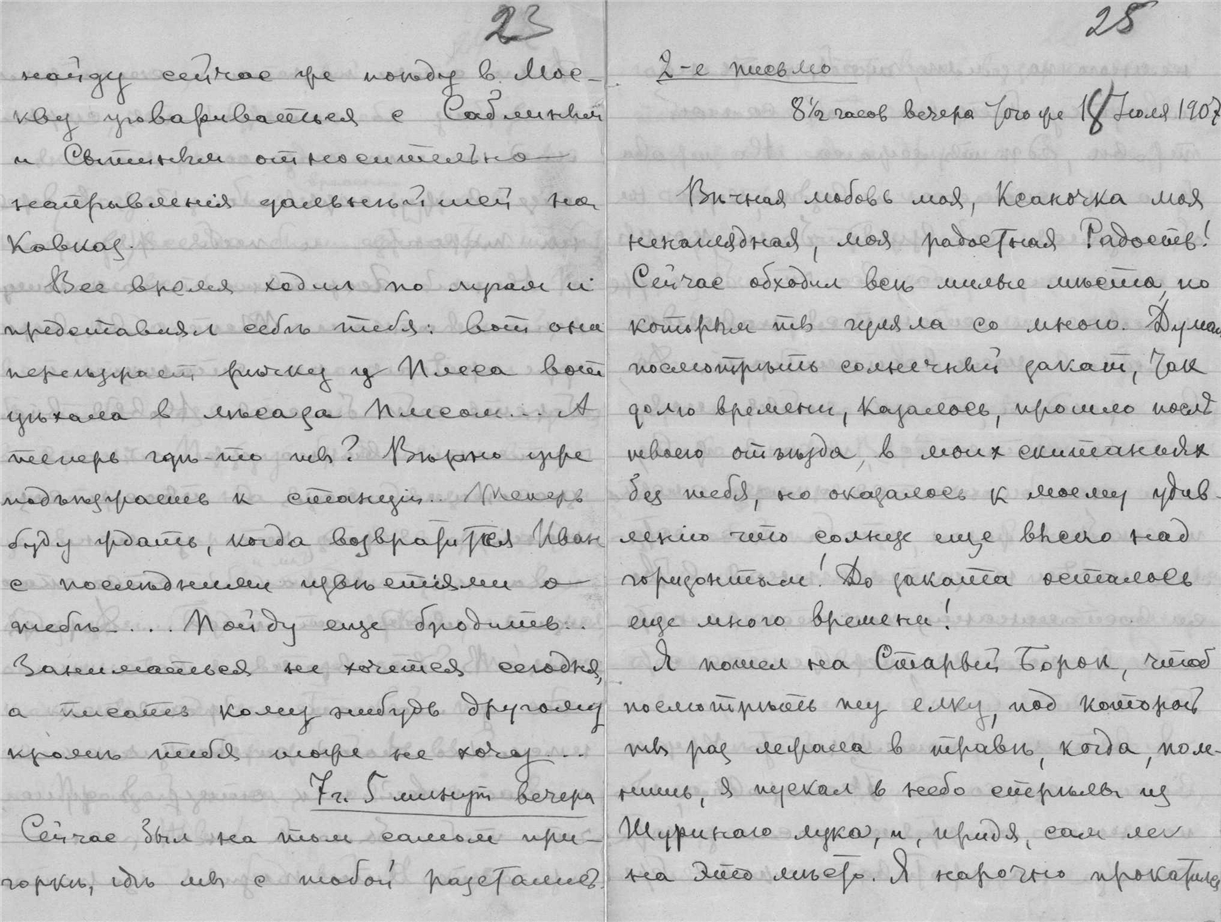 23
найду сейчас же поѣду в Мос-
кву уговариваться с Саблиным
и Сытиным относительно
направленія дальнѣйшей на
Кавказ.
Все время ходил по лугам и
представлял себѣ тебя: вот она
переѣзжает рѣчку у Плеса вот
уѣхала в лѣса за Плесом... А
теперь гдѣ-то ты? Вѣрно уже
подъѣзжаешь к станціи... Теперь
буду ждать, когда возвратится Иван
с послѣдними извѣстіями о
тебѣ.... Пойду еще бродить..
Заниматься не хочется сегодня,
а писать кому нибудь другому
кромѣ тебя тоже не хочу...
7 ч. 5 минут вечера
Сейчас был на том самом при-
горкѣ, гдѣ мы с тобой разстались.
25
2-е письмо
8½ часов вечера того же 18 Іюля 1907
Вѣчная любовь моя, Ксаночка моя
ненаглядная, моя радостная Радость!
Сейчас обходил всѣ милые мѣста, по
которым ты гуляла со мною. Думал
посмотрѣть солнечный закат, так
долго времени, казалось, прошло послѣ
твоего отъѣзда, в моих скитаньях
без тебя, но оказалось к моему удив-
ленію что солнце еще высоко над
горизонтом! До заката осталось
еще много времени!
Я пошел на Старый Борок, чтоб
посмотрѣть ту елку, под которой
ты раз лежала в травѣ, когда, пом-
нишь, я пускал в небо стрѣлы из
Шуринаго лука, и, придя, сам лег
на это мѣсто. Я нарочно прокатился